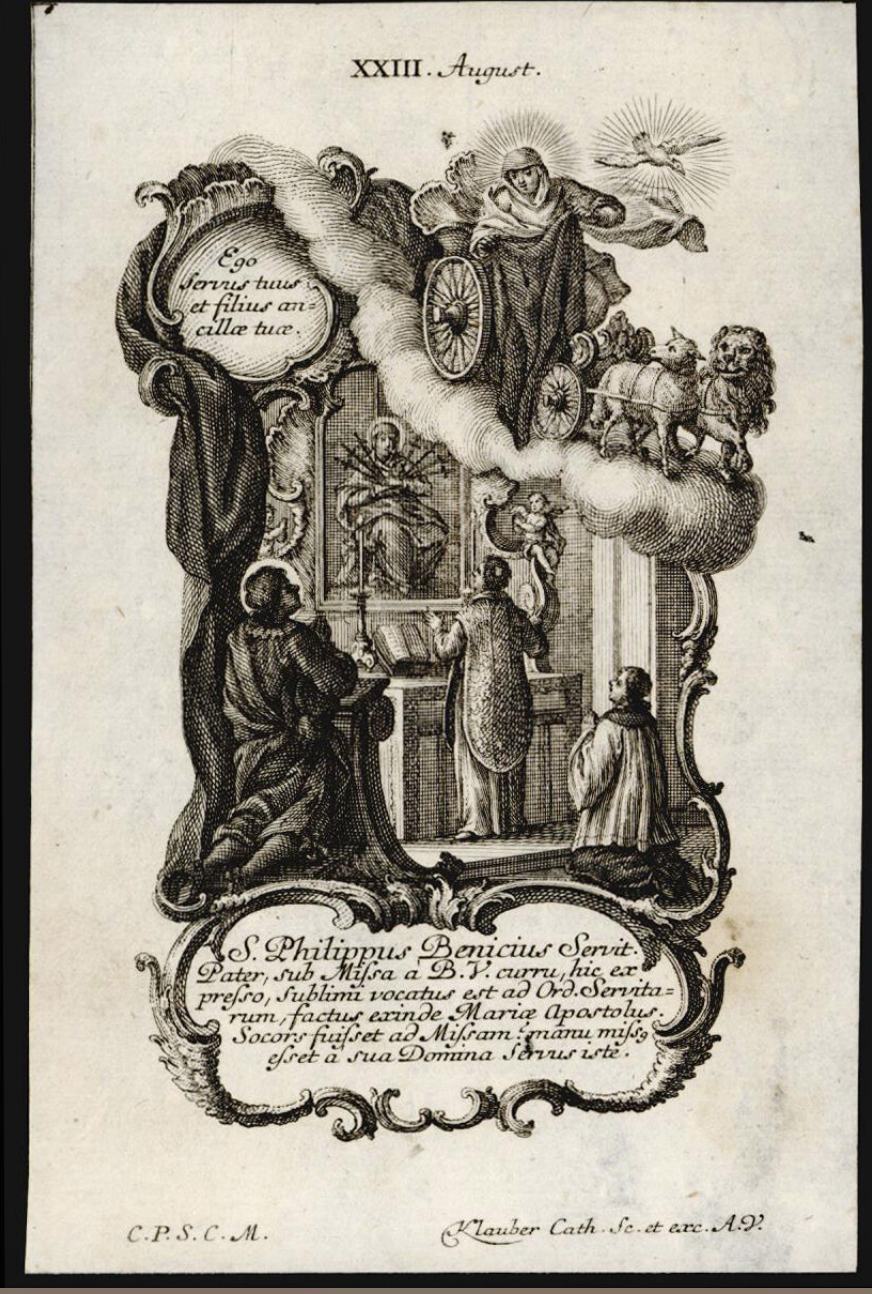 XXIII. August.
Ego
servus tuus
et filius an=
cillæ tuæ.
S. Philippus Benicius Servit.
Pater, sub Missa à B.V. curru, hic ex
presso, sublimi vocatus est ad Ord. Servita=
rum, factus exinde Mariæ Apostolus.
Socors fuisset ad Missam: manu missꝰ
esset à sua Domina servus iste.
C.P.S.C.M.
Klauber Cath. Sc. et exc. A.V.